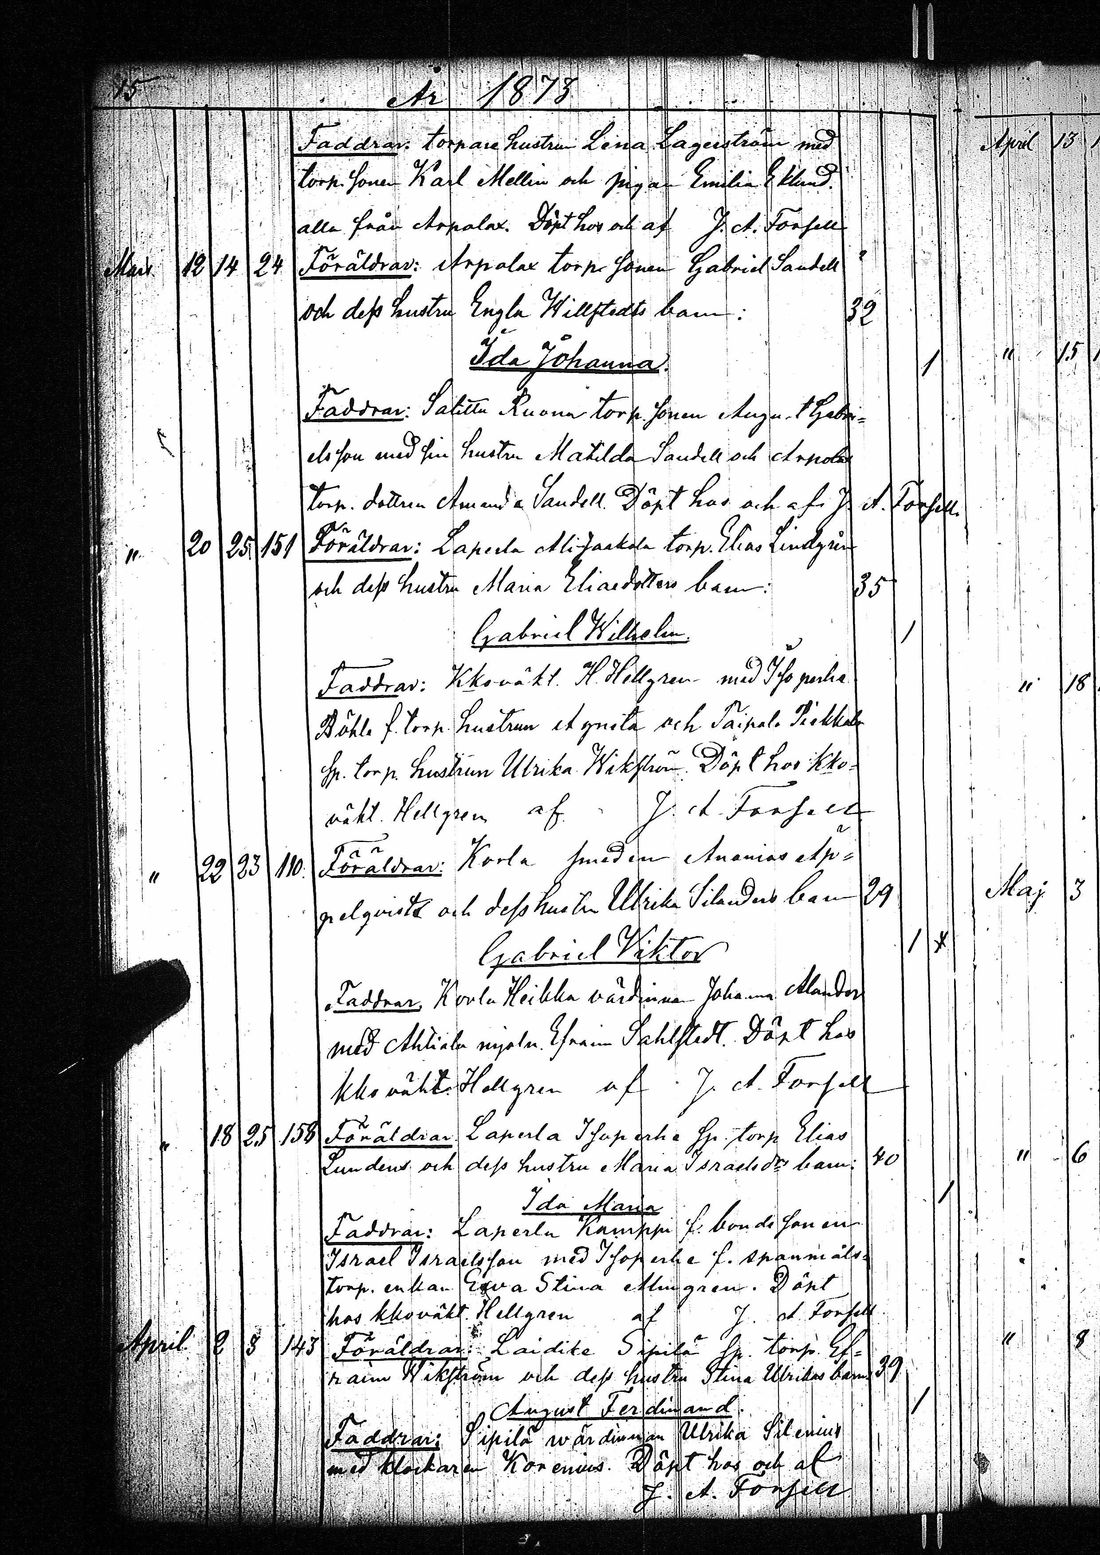 15
År 1873
Faddrar: torpare hustrun Lena Lagerström med
torp. sonen Karl Mellin och pigan Emilia Eklund.
alla från Arpalax. Döpt hos och af J. A. Forsell
Mars 12 14 24 Föräldrar: Arpalax torp. sonen Gabriel Sandell
och dess hustru Engla Willstedts barn: 32
Ida Johanna. 1
Faddrar: torp. sonen August Gabri=
elsson med sin hustru Matilda Sandell och Arpalax
torp. dottren Amanda Sandell. Döpt hos och af J. A. Forsell.
" 20 25 151 Föräldrar: Laperla torp. Elias Lindgren
och dess hustru Maria Eliaedotters barn: 35
Gabriel Wilhelm. 1
Faddrar: Kkoväkt. H. Hellgren med Isoperhe
Böhle f. torp. hustrun Agneta och Taipale Piekkala
sp. torp. hustrun Ulrika Wikström. Döpt hos kko-
väkt. Hellgren af J. A. Forsell
" 22 23 110. Föräldrar: Korla smeden Ananias Ap=
pelqvists och dess hustru Ulrika Silanders barn 29
Gabriel Viktor 1
Faddrar. Korla Heikka värdinnan Johanna Alander
med Ahtiala Efraim Sahlstedt. Döpt hos
kkoväkt. Hellgren af J. A. Forsell
" 18 25 158 Föräldrar Laperla Isoperhe sp. torp. Elias
Lundens och dess hustru Maria Israelsdrs barn: 40
Ida Maria 1
Faddrar: Laperla Kamppi f. bondesonen
Israel Israelsson med Isoperhe f. spanmåls=
torp. enkan Eva Stina Almgren. Döpt
hos kkoväkt. Hellgren af J. A. Forsell
April 2 3 143 Föräldrar: Laidike Sipilä sp. torp. Ef=
raim Wikström och dess hustru Stina Ulrikas barn 39
August Ferdinand. 1
Faddrar: Sipilä wärdinnan Ulrika Silenius
med klockaren Korenius. Döpt hos och af
J. A. Forsell
April 13
" 15
" 18
Maj 3
" 6
" 8